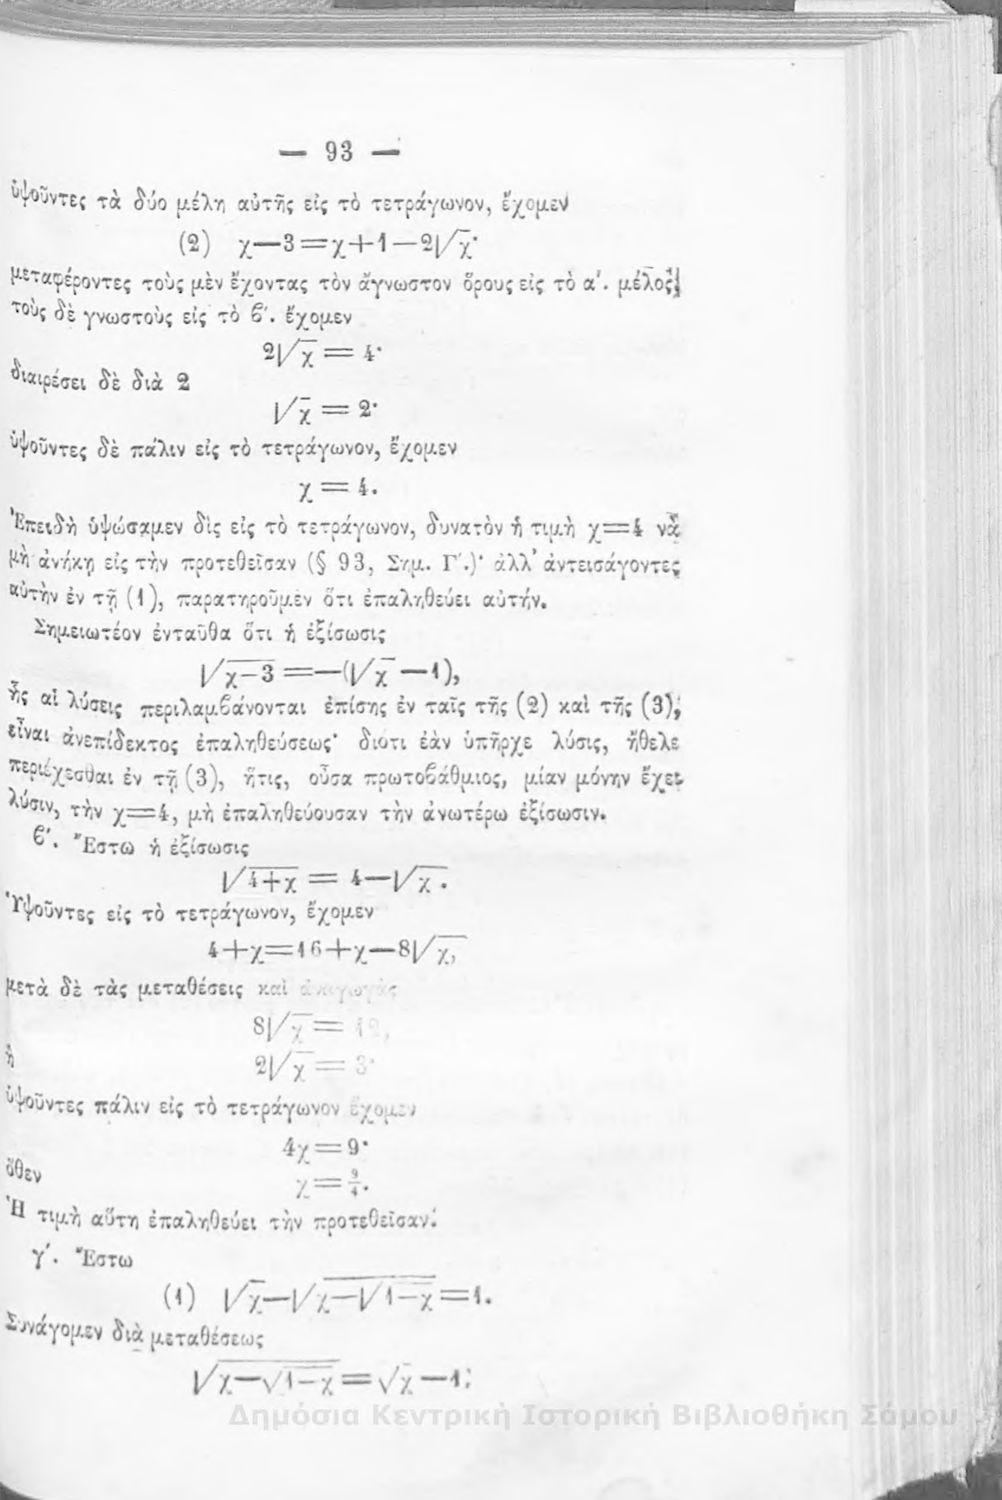 — 93 —
ὑψοῦντες τὰ δύο μέλη αὐτῆς εἰς τὸ τετράγωνον, ἔχομεν
(2) χ—3=χ+1—2√χ·
μεταφέροντες τοὺς μὲν ἔχοντας τὸν ἄγνωστον ὅρους εἰς τὸ α΄. μέλος,
τοὺς δὲ γνωστοὺς εἰς τὸ ϐ΄. ἔχομεν
2√χ = 4·
διαιρέσει δὲ διὰ 2
√χ = 2·
ὑψοῦντες δὲ πάλιν εἰς τὸ τετράγωνον, ἔχομεν
χ = 4.
Ἐπειδὴ ὑψώσαμεν δὶς εἰς τὸ τετράγωνον, δυνατὸν ἡ τιμὴ χ=4 νὰ
μὴ ἀνήκῃ εἰς τὴν προτεθεῖσαν (§ 93, Σημ. Γ΄.)· ἀλλ᾽ ἀντεισάγοντες
αὐτὴν ἐν τῇ (1), παρατηροῦμεν ὅτι ἐπαληθεύει αὐτήν.
Σημειωτέον ἐνταῦθα ὅτι ἡ ἐξίσωσις
√χ—3 =—(√χ —1),
ἧς αἱ λύσεις περιλαμϐάνονται ἐπίσης ἐν ταῖς τῆς (2) καὶ τῆς (3),
εἶναι ἀνεπίδεκτος ἐπαληθεύσεως· διότι ἐὰν ὑπῆρχε λύσις, ἤθελε
περιέχεσθαι ἐν τῇ (3), ἥτις, οὖσα πρωτοϐάθμιος, μίαν μόνην ἔχει
λύσιν, τὴν χ=4, μὴ ἐπαληθεύουσαν τὴν ἀνωτέρω ἐξίσωσιν.
ϐ΄. Ἔστω ἡ ἐξίσωσις
√4+χ = 4—√χ.
Ὑψοῦντες εἰς τὸ τετράγωνον, ἔχομεν
4+χ=16+χ—8√χ,
μετὰ δὲ τὰς μεταθέσεις καὶ ἀναγωγὰς
8√χ = 12,
ἢ
2√χ = 3·
ὑψοῦντες πάλιν εἰς τὸ τετράγωνον ἔχομεν
4χ = 9·
ὅθεν
χ = 9/4.
Ἡ τιμὴ αὕτη ἐπαληθεύει τὴν προτεθεῖσαν.
γ΄. Ἔστω
(1) √χ—√χ—√1—χ =1.
Συνάγομεν διὰ μεταθέσεως
√χ—√1—χ = √χ —1·
Δημόσια Κεντρική Ιστορική Βιβλιοθήκη Σάμου